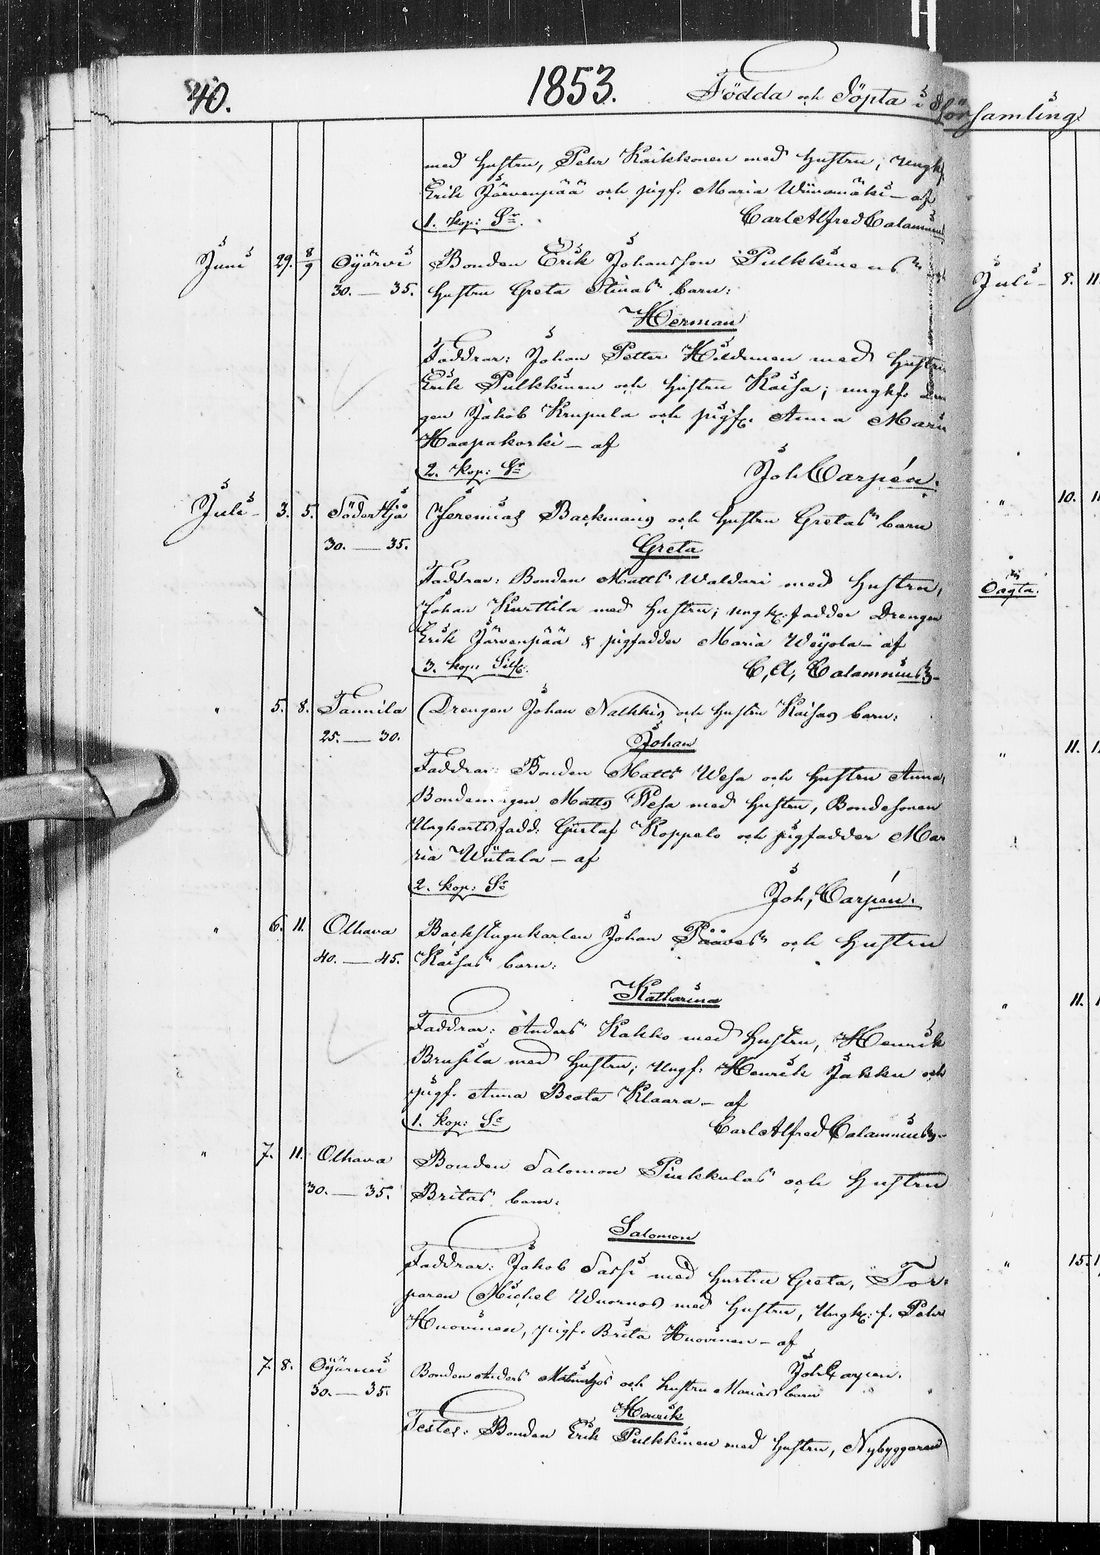 40. 1853. Födda och Döpta i
med hustru, Pehr Kaikkonen med hustru, ungk.
Erik Järvenpää och pigf. Maria Wiinamäki – af
1. kop: Sr. Carl Alfred Calamnius
Juni 29. 8/9 Oijärvi Bonden Erik Johansson Pulkkinens och
30. — 35. hustru Greta Stinas barn:
Herman
Faddrar: Johan Petter med hustru
Erik Pulkkinen och hustru Kaisa; ungkf. Drän
gen Jakob Krupula och pigf. Anna Maria
Haapakoski – af
2. kop: Sr Joh Carpén.
Juli – 3. 5. Jeremias Backmans och hustru Gretas barn
30. — 35. Greta
Faddrar: Bonden Matts Waldari med hustru,
Johan Kurttila med hustru; ungk. fadder Drengen
Erik Järvenpää & pigfadder Maria Weijola – af
3. kop: Silf. C, A, Calamnius
" 5. 8. Tannila Drengen Johan Nalkkis och hustru Kaisas barn:
25. — 30. Johan
Faddrar: Bonden Matts Wesa och hustru Anna,
Bondemågen Matts Wesa med hustru, Bondesonen
Ungkarls fadd. Gustaf Koppelo och pigfadder Ma
ria Wiitala – af
2. kop: Sr Joh, Carpén.
" 6. 11. Olhava Backstugukarlen Johan Päävos och hustru
40. — 45. Kaisas barn:
Katharina
Faddrar: Anders Kakko med hustru, Henrik
Brusila med hustru; ungf. Henrik Jakku och
pigf. Anna Beata Klaara – af
1. kop: Sr Carl Alfred Calamnius
" 7. 11. Olhava Bonden Salomon Pinkkulas och hustru
30. — 35. Britas barn:
Salomon
Faddrar: Jakob Sassi med hustru Greta, Tor-
paren Michel Wuornos med hustru, Ungk. f. Pehr
Huovinen, pigf. Brita Huovinen – af
Joh Carpen.
7. 8. Oijärvi Bonden Anders och hustru Marias barn
30. — 35. Henrik
Testes: Bonden Erik Pulkkinen med hustru, Nybyggaren
församling
Juli – 5. 11
" 10. 11
" 11.
" 11.
" 15.